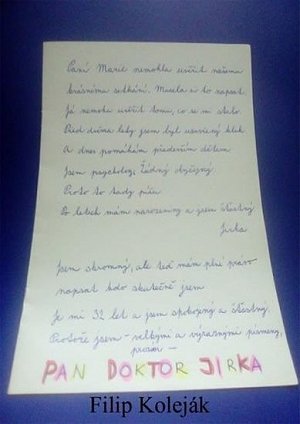 Paní Marie nemohla uvěřit našemu
krásnému setkání. Musela a to napsat
Já nemohu uvěřit tomu, co se mi stalo.
Před dvěma lety jsem byl uzavřený kluk
A dnes pomáhám především dětem
Jsem psycholog, žádný obyčejný
Proto to tady píšu
Po letech mám narozeniny a jsem šťastný
Jirka
Jsem skromný, ale teď mám plné právo
napsat kdo skutečně jsem
Je mi 32 let a jsem spokojený a šťastný.
Protože jsem - velkými a výraznými písmeny,
prosím -
PAN DOKTOR JIRKA
Filip Koleják